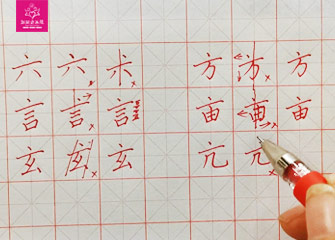 六 六 六 方 方 方
言 言 言 亩 亩 亩
玄 玄 玄 亢 亢